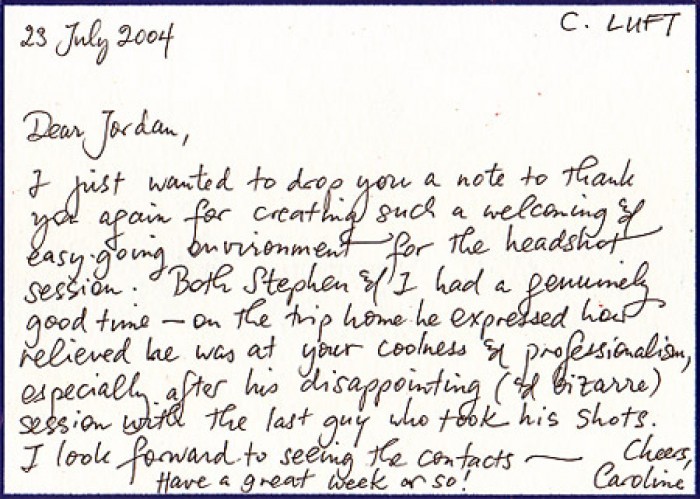 23 July 2004
C. LUFT
Dear Jordan,
I just wanted to drop you a note to thank
you again for creating such a welcoming &
easy-going environment for the headshot
session. Both Stephen & I had a genuinely
good time — on the trip home he expressed how
relieved he was at your coolness & professionalism,
especially after his disappointing (& bizarre)
session with the last guy who took his shots.
I look forward to seeing the contacts — Cheers,
Have a great week or so! Caroline